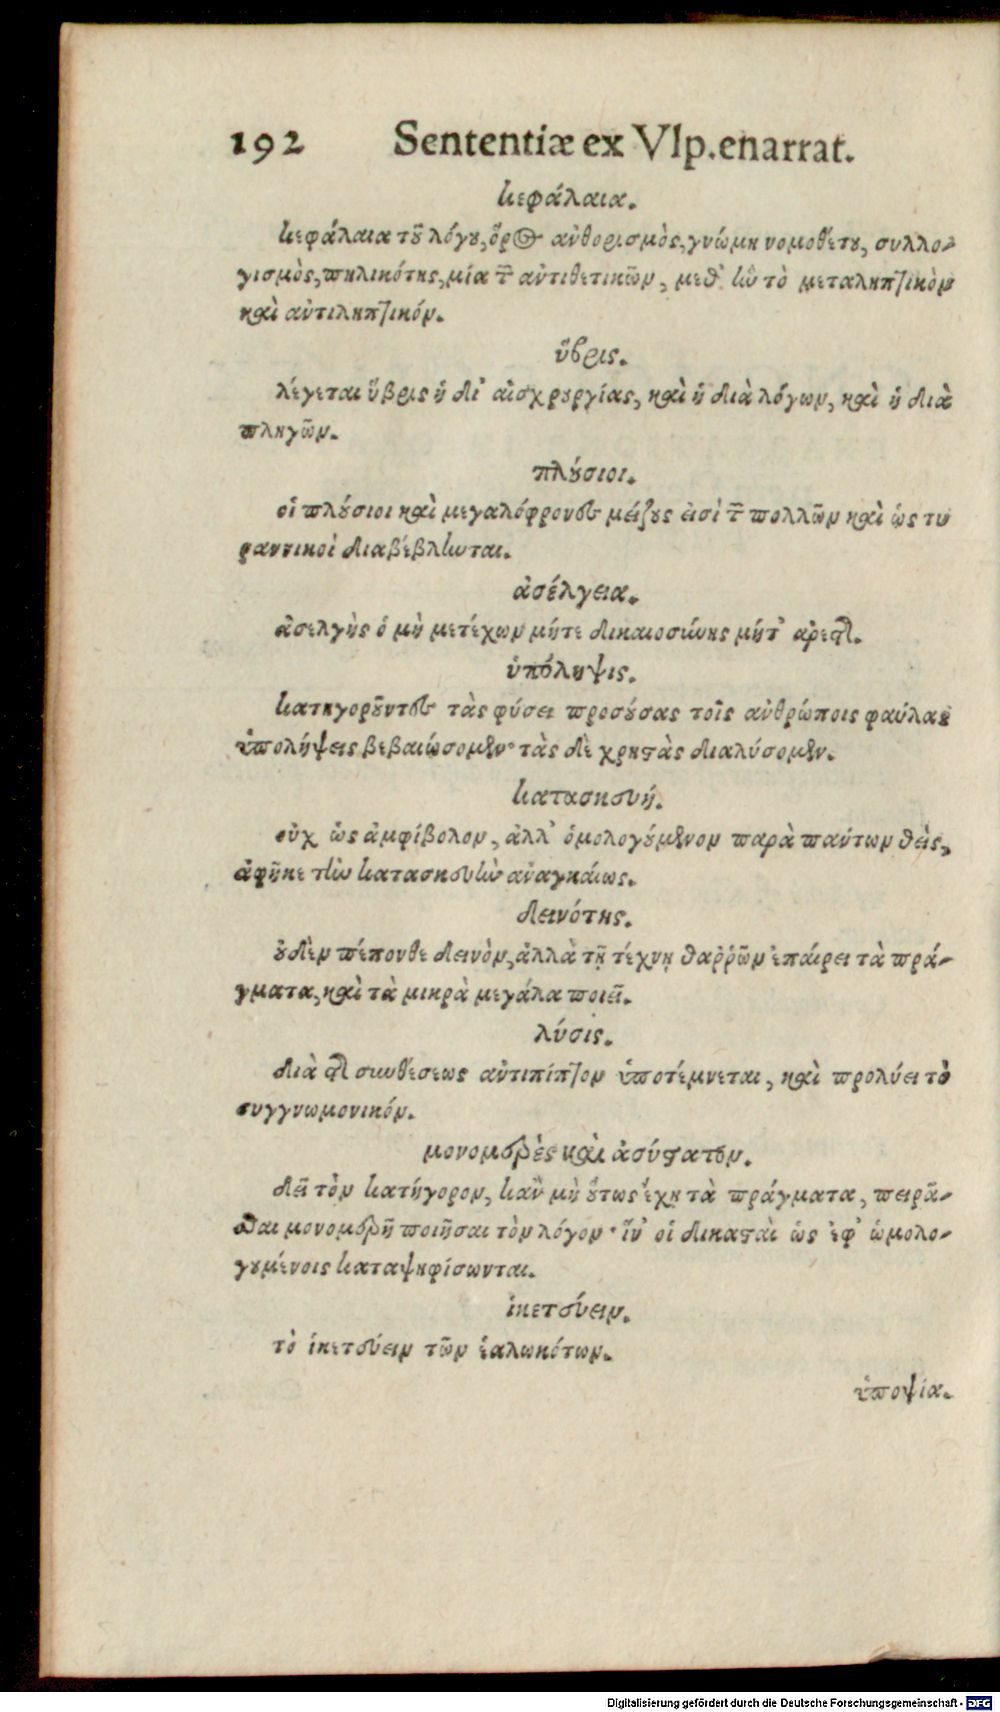 192 Sententiæ ex Vlp. enarrat.
κεφάλαια.
κεφάλαια τοῦ λόγου, ὅρος ἀνθορισμὸς, γνώμη νομοθέτου, συλλο-
γισμὸς, πηλικότης, μία τῶν ἀντιθετικῶν, μεθ' ἣν τὸ μεταληπτικὸν
καὶ ἀντιληπτικόν.
ὕβρις.
λέγεται ὕβρις ἡ δι' αἰσχρουργίας, καὶ ἡ διὰ λόγων, καὶ ἡ διὰ
πληγῶν.
πλούσιοι.
οἱ πλούσιοι καὶ μεγαλόφρονες μείζους εἰσὶ τῶν πολλῶν καὶ ὡς τυ
ραννικοὶ διαβέβληνται.
ἀσέλγεια.
ἀσελγὴς ὁ μὴ μετέχων μήτε δικαιοσύνης μήτ' ἀρετῆς.
ὑπόληψις.
κατηγοροῦντες τὰς φύσει προσούσας τοῖς ἀνθρώποις φαύλας
ὑπολήψεις βεβαιώσομεν· τὰς δὲ χρηστὰς διαλύσομεν.
κατασκευή.
οὐχ ὡς ἀμφίβολον, ἀλλ' ὁμολογούμενον παρὰ πάντων θεὶς,
ἀφῆκε τὴν κατασκευὴν ἀναγκαίως.
δεινότης.
οὐδὲν πέπονθε δεινὸν, ἀλλὰ τῇ τέχνῃ θαῤῥῶν ἐπαίρει τὰ πρά-
γματα, καὶ τὰ μικρὰ μεγάλα ποιεῖ.
λύσις.
διὰ τῆς συνθέσεως ἀντιπίπτον ὑποτέμνεται, καὶ προλύει τὸ
συγγνωμονικόν.
μονομερὲς καὶ ἀσύστατον.
δεῖ τὸν κατήγορον, κἂν μὴ οὕτως ἔχῃ τὰ πράγματα, πειρᾶ-
σθαι μονομερῆ ποιῆσαι τὸν λόγον· ἵν' οἱ δικασταὶ ὡς ἐφ' ὡμολο-
γουμένοις καταψηφίσωνται.
ἱκετεύειν.
τὸ ἱκετεύειν τῶν ἑαλωκότων.
ὑποψία.
Digitalisierung gefördert durch die Deutsche Forschungsgemeinschaft - DFG